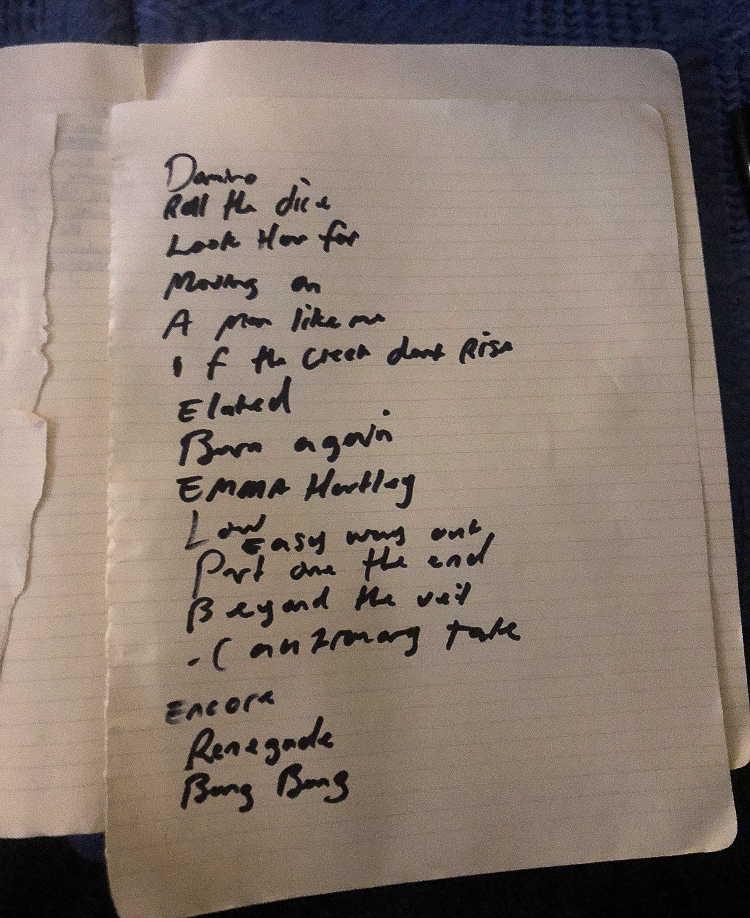 Domino
Roll the dice
Look How far
Moving on
A man like me
If the creek dont Rise
Elated
Born again
EMMA Hartley
Low
Easy way out
Part one the end
Beyond the veil
- Cautionary tale
Encore
Renegade
Bang Bang